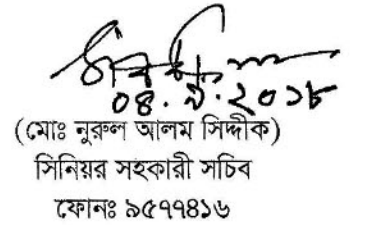 ০৪.৯.২০১৮
(মোঃ নুরুল আলম সিদ্দীক)
সিনিয়র সহকারী সচিব
ফোনঃ ৯৫৭৭৪১৬